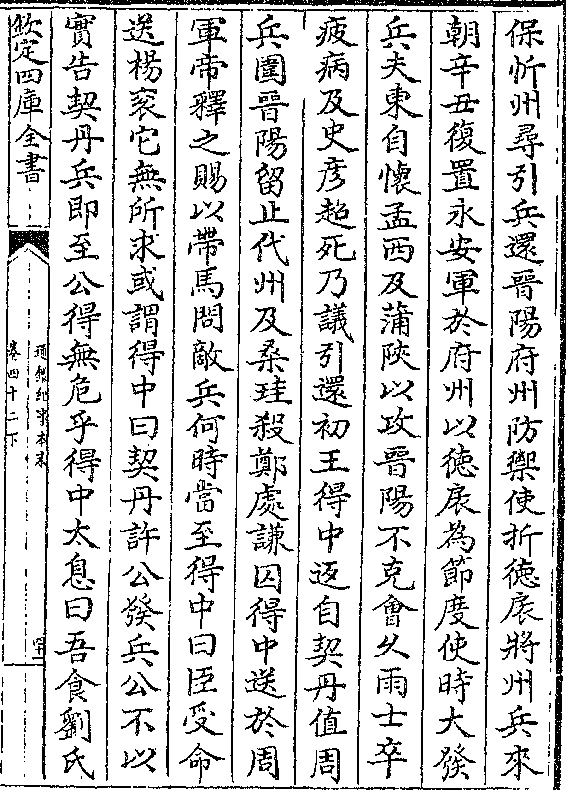 保忻州尋引兵還晉陽府州防禦使折徳扆將州兵來
朝辛丑復置永安軍於府州以徳扆為節度使時大發
兵夫東自懷孟西及蒲陜以攻晉陽不克會久雨士卒
疲病及史彦超死乃議引還初王得中返自契丹值周
兵圍晉陽留止代州及桑珪殺鄭處謙囚得中送於周
軍帝釋之賜以帶馬問敵兵何時當至得中曰臣受命
送楊衮它無所求或謂得中曰契丹許公發兵公不以
實告契丹兵即至公得無危乎得中太息曰吾食劉氏
欽定四庫全書
通鑑紀事本末
卷四十二下